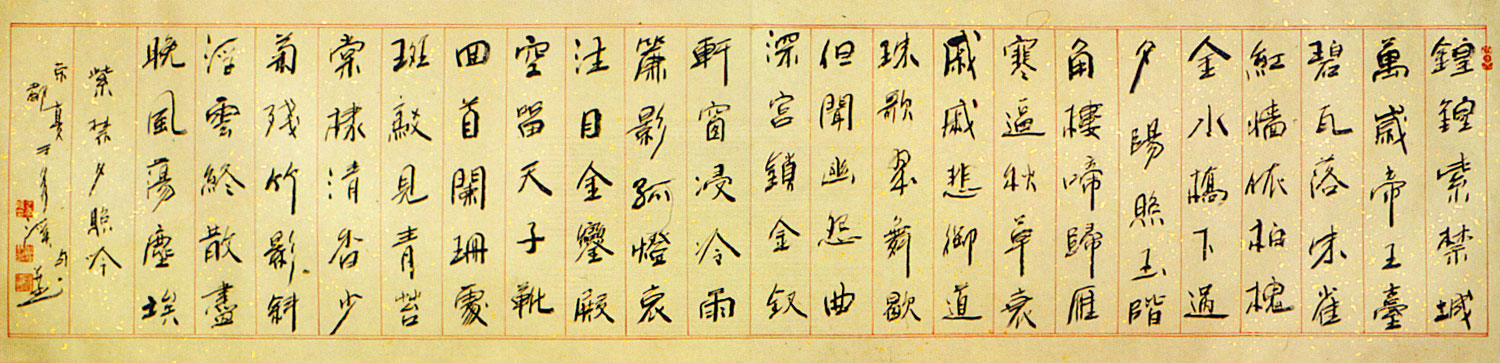 鍠鍠紫禁城
萬歲帝王臺
碧瓦落朱雀
紅牆依柏槐
金水橋下過
夕陽照玉階
角樓啼歸雁
寒逼秋草衰
戚戚悲御道
珠歌翠舞歇
但聞幽怨曲
深宮鎖金釵
軒窗浸冷雨
簾影孤燈哀
注目金鑾殿
空留天子靴
回首闌珊處
斑駁見青苔
棠棣清香少
菊殘竹影斜
浮雲終散盡
晚風蕩塵埃
紫禁夕照吟